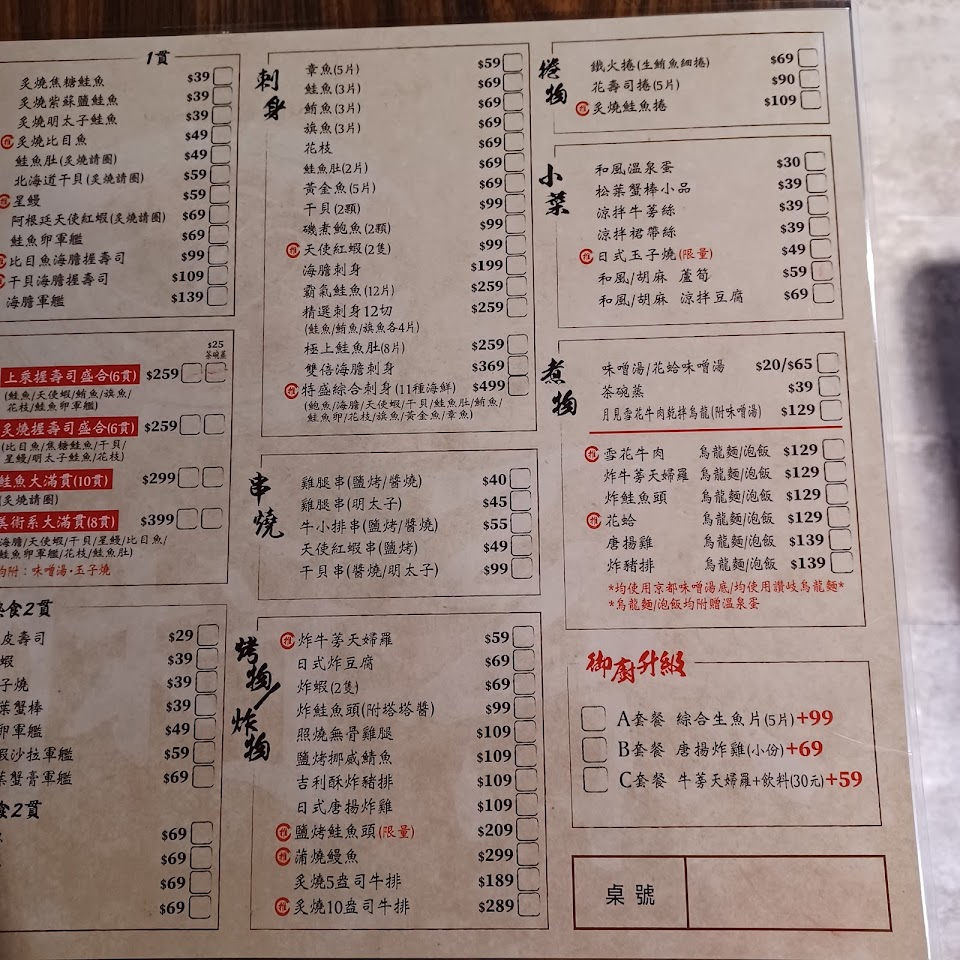 1貫
炙燒焦糖鮭魚 $39
炙燒紫蘇鹽鮭魚 $39
炙燒明太子鮭魚 $39
推 炙燒比目魚 $49
鮭魚肚(炙燒請圈) $49
北海道干貝(炙燒請圈) $59
推 星鰻 $59
阿根廷天使紅蝦(炙燒請圈) $69
鮭魚卵軍艦 $69
推 比目魚海膽握壽司 $99
推 干貝海膽握壽司 $109
海膽軍艦 $139
$25
茶碗蒸
上乘握壽司盛合(6貫) $259
(鮭魚/天使蝦/鮪魚/旗魚/
花枝/鮭魚卵軍艦)
炙燒握壽司盛合(6貫) $259
(比目魚/焦糖鮭魚/干貝/
星鰻/明太子鮭魚/花枝)
鮭魚大滿貫(10貫) $299
(炙燒請圈)
美術系大滿貫(8貫) $399
海膽/天使蝦/干貝/星鰻/比目魚/
鮭魚卵軍艦/花枝/鮭魚肚)
均附：味噌湯·玉子燒
食2貫
皮壽司 $29
蝦 $39
子燒 $39
葉蟹棒 $39
卵軍艦 $49
蝦沙拉軍艦 $59
葉蟹膏軍艦 $69
食2貫
$69
$69
$69
$69
刺身
章魚(5片) $59
鮭魚(3片) $69
鮪魚(3片) $69
旗魚(3片) $69
花枝 $69
鮭魚肚(2片) $69
黃金魚(5片) $69
干貝(2顆) $99
磯煮鮑魚(2顆) $99
推 天使紅蝦(2隻) $99
海膽刺身 $199
霸氣鮭魚(12片) $259
精選刺身12切 $259
(鮭魚/鮪魚/旗魚各4片)
極上鮭魚肚(8片) $259
雙倍海膽刺身 $369
推 特盛綜合刺身(11種海鮮) $499
(鮑魚/海膽/天使蝦/干貝/鮭魚肚/鮪魚/
鮭魚卵/花枝/旗魚/黃金魚/章魚)
串燒
雞腿串(鹽烤/醬燒) $40
雞腿串(明太子) $45
牛小排串(鹽烤/醬燒) $55
天使紅蝦串(鹽烤) $49
干貝串(醬燒/明太子) $99
烤物/炸物
推 炸牛蒡天婦羅 $59
日式炸豆腐 $69
炸蝦(2隻) $69
炸鮭魚頭(附塔塔醬) $99
照燒無骨雞腿 $109
鹽烤挪威鯖魚 $109
吉利酥炸豬排 $109
日式唐揚炸雞 $109
推 鹽烤鮭魚頭(限量) $209
推 蒲燒鰻魚 $299
炙燒5盎司牛排 $189
推 炙燒10盎司牛排 $289
捲物
鐵火捲(生鮪魚細捲) $69
花壽司捲(5片) $90
推 炙燒鮭魚捲 $109
小菜
和風溫泉蛋 $30
松葉蟹棒小品 $39
涼拌牛蒡絲 $39
涼拌裙帶絲 $39
推 日式玉子燒(限量) $49
和風/胡麻 蘆筍 $59
和風/胡麻 涼拌豆腐 $69
煮物
味噌湯/花蛤味噌湯 $20/$65
茶碗蒸 $39
月見雪花牛肉乾拌烏龍(附味噌湯) $129
推 雪花牛肉 烏龍麵/泡飯 $129
炸牛蒡天婦羅 烏龍麵/泡飯 $129
炸鮭魚頭 烏龍麵/泡飯 $129
推 花蛤 烏龍麵/泡飯 $129
唐揚雞 烏龍麵/泡飯 $139
炸豬排 烏龍麵/泡飯 $139
*均使用京都味噌湯底/均使用讚岐烏龍麵*
*烏龍麵/泡飯均附贈溫泉蛋
御廚升級
A套餐 綜合生魚片(5片)+99
B套餐 唐揚炸雞(小份)+69
C套餐 牛蒡天婦羅+飲料(30元)+59
桌號